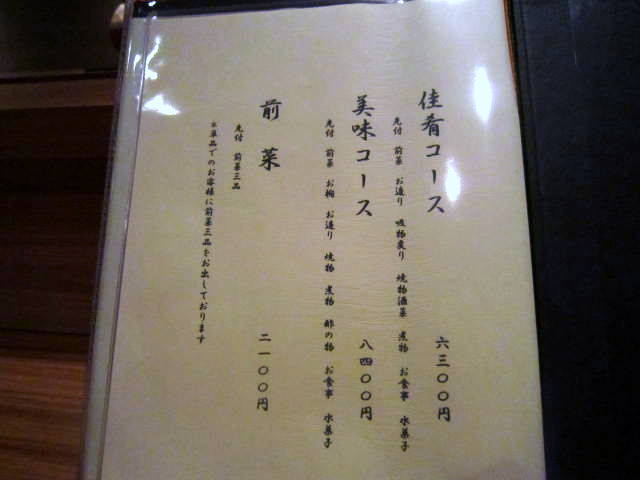 佳肴コース 六三〇〇円
先付 前菜 お造り 吸物 焼物 酒菜 煮物 お食事 水菓子
美味コース 八四〇〇円
先付 前菜 お椀 お造り 焼物 煮物 酢の物 お食事 水菓子
前菜 二一〇〇円
先付 前菜三品
※単品でのお客様に前菜三品をお出しております